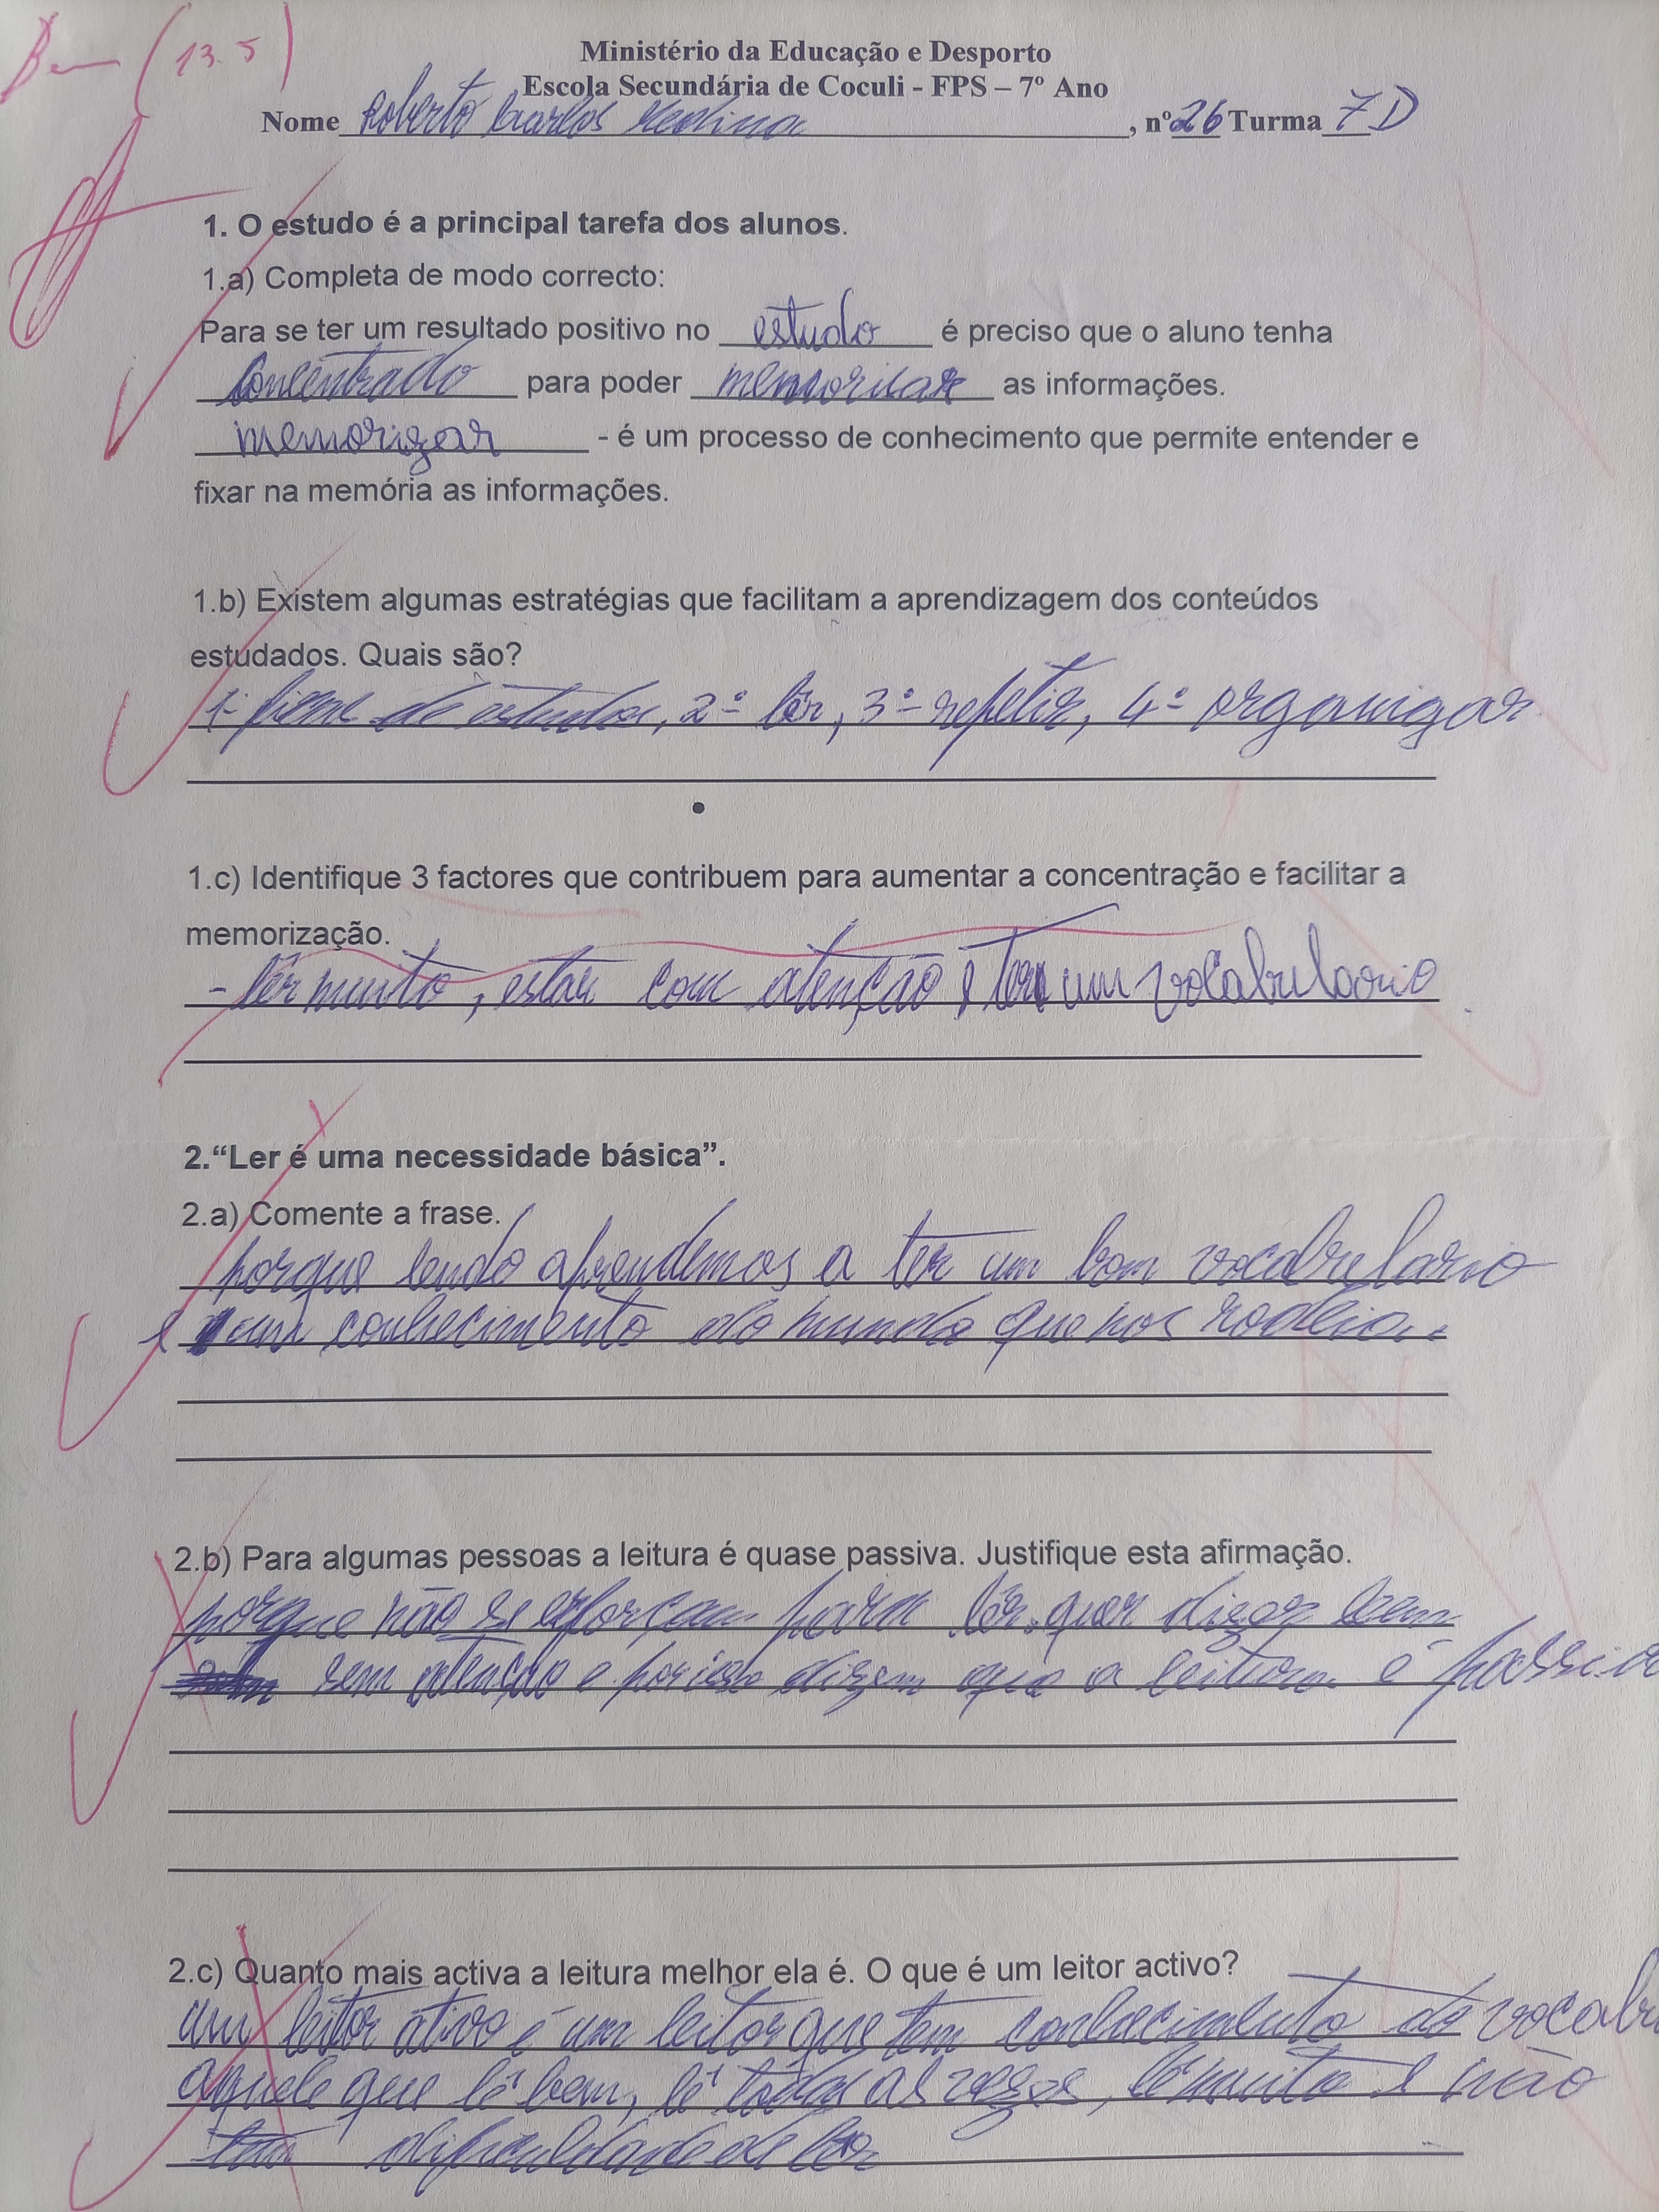 Bem (13.5)
Ministério da Educação e Desporto
Escola Secundária de Coculi - FPS – 7º Ano
Nome Roberto Carlos Medina, nº 26 Turma 7D
1. O estudo é a principal tarefa dos alunos.
1.a) Completa de modo correcto:
Para se ter um resultado positivo no estudo é preciso que o aluno tenha
concentrado para poder memorizar as informações.
memorizar - é um processo de conhecimento que permite entender e
fixar na memória as informações.
1.b) Existem algumas estratégias que facilitam a aprendizagem dos conteúdos
estudados. Quais são?
1- de estudos, 2º- lêr, 3º- repetir, 4º- organizar
1.c) Identifique 3 factores que contribuem para aumentar a concentração e facilitar a
memorização.
- lêr muito, estar com atenção e ter um vocabulario
2.“Ler é uma necessidade básica”.
2.a) Comente a frase.
porque lendo aprendemos a ter um bom vocabulario
e um conhecimento do mundo que nos rodeia.
2.b) Para algumas pessoas a leitura é quase passiva. Justifique esta afirmação.
porque não se esforçam para lêr. quer dizer leem
sem atenção e por isso dizem que a leitura é passiva
2.c) Quanto mais activa a leitura melhor ela é. O que é um leitor activo?
um leitor ativo é um leitor que tem conhecimento do vocabu
aquele que lê bem, lê todas as vezes, lê muito e não
tem dificuldade de lêr